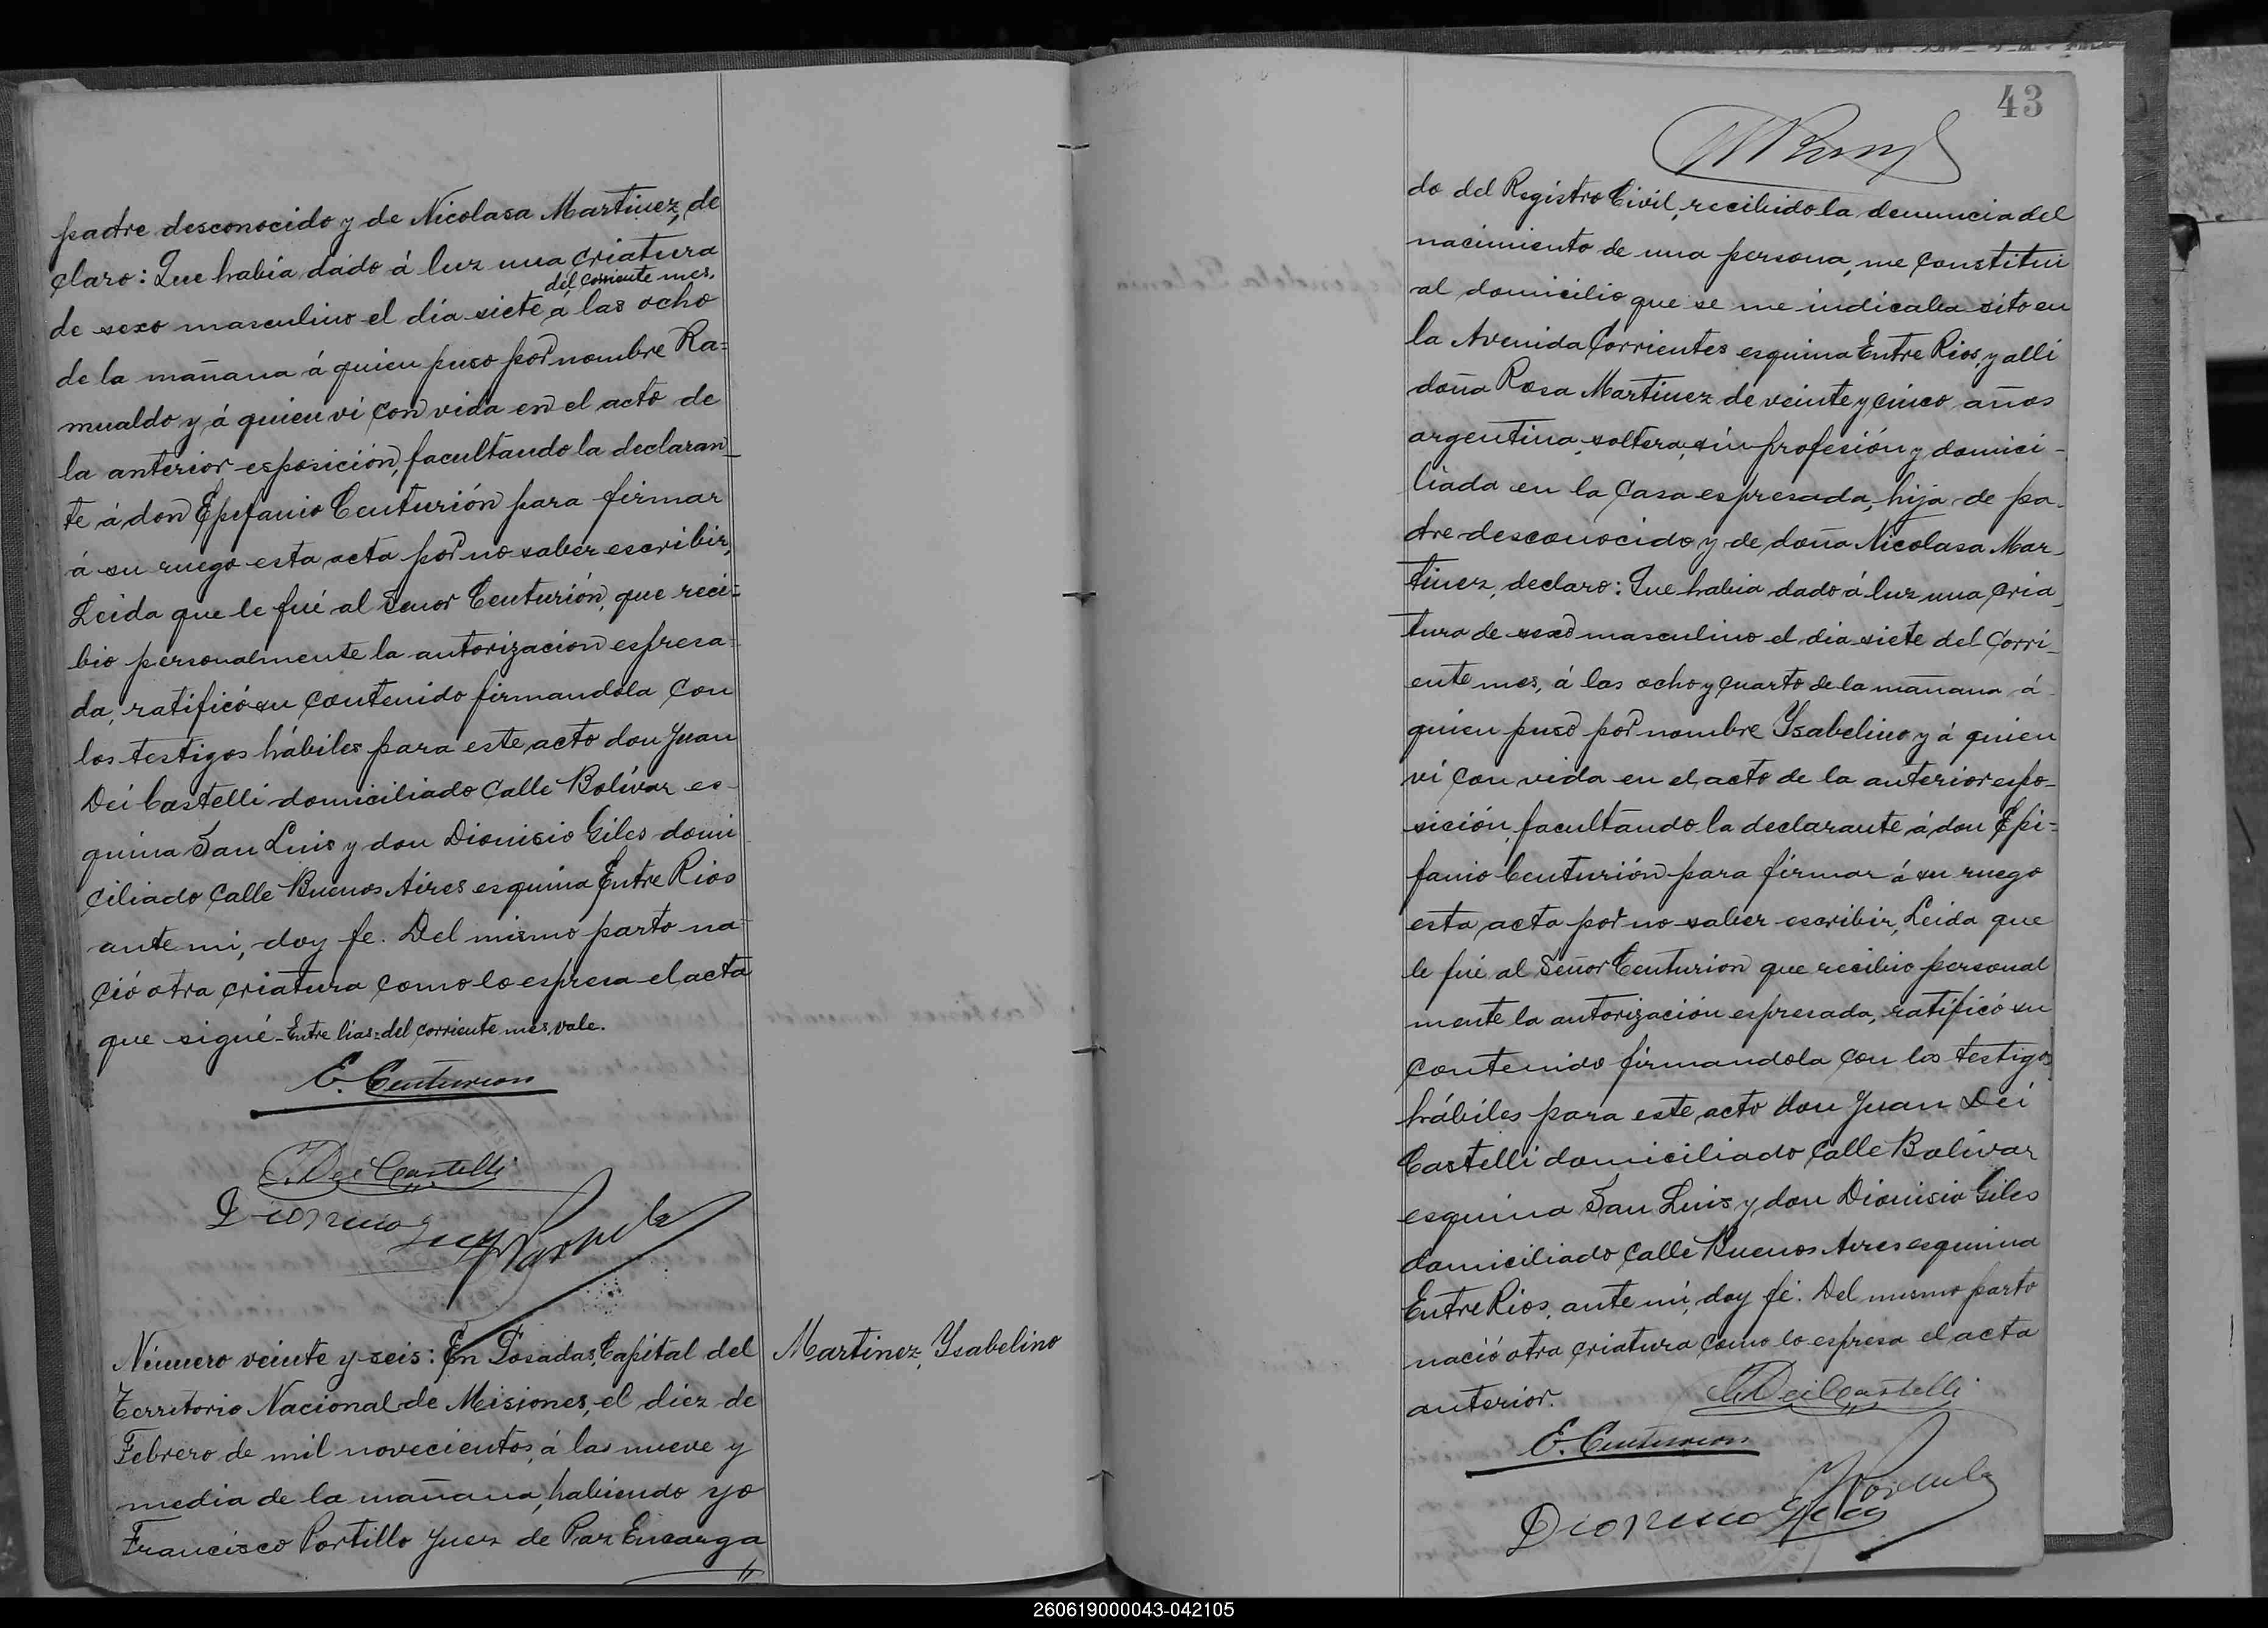 padre desconocido y de Nicolasa Martinez, de
claro: Que había dado á luz una criatura
del corriente mes.
de sexo masculino el día siete á las ocho
de la mañana á quien puso por nombre Ra=
mualdo y á quien ví con vida en el acto de
la anterior esposición, facultando la declaran_
te á don Epifanio Centurión para firmar
á su ruego esta acta por no saber escribir,
Leida que le fué al Señor Centurión, que reci=
bio personalmente la autorizacion espresa=
da, ratificó su contenido firmandola con
los testigos hábiles para este acto don Juan
Dei Castelli domiciliado Calle Bolívar es-
quina San Luis y don Dionisio Giles domi
ciliado Calle Buenos Aires esquina Entre Rios
ante mi, doy fe. Del mismo parto na=
ció otra criatura como lo espresa el acta
que sigué - Entre lias = del corriente mes, vale.
E. Centurion
J. Dei Castelli
Dionicio
Número veinte y seis: En Posadas, Capital del
Martinez, Ysabelino
Territorio Nacional de Misiones, el diez de
Febrero de mil novecientos, á las nueve y
media de la mañana, habiendo yo
Francisco Portillo Juez de Paz Encarga
43
do del Registro Civil, recibido la denuncia del
nacimiento de una persona, me constitui
al domicilio que se me indicaba sito en
la Avenida Corrientes esquina Entre Rios, y allí
doña Rosa Martinez de veinte y cinco años
argentina, soltera, sin profesión y domici-
liada en la Casa espresada, hija de pa-
dre desconocido y de doña Nicolasa Mar-
tinez, declaro: Que habia dado á luz una cria_
tura de sexo masculino el dia siete del Corri_
ente mes, á las ocho y cuarto de la mañana á
quien puso por nombre Ysabelino y á quien
ví con vida en el acto de la anterior espo-
sición, facultando la declarante á don Epi=
fanio Centurión para firmar á su ruego
esta acta por no saber escribir, Leida que
le fué al Señor Centurion que recibio personal
mente la autorización espresada, ratificó su
contenido firmandola con los testigos
hábiles para este acto don Juan Dei
Castelli domiciliado Calle Bolívar
esquina San Luis y don Dionisio Giles
domiciliado Calle Buenos Aires esquina
Entre Rios, ante mí, doy fé. Del mismo parto
nació otra criatura como lo espresa el acta
anterior.
J. Dei Castelli
E. Centurion
Dionicio Giles
260619000043-042105